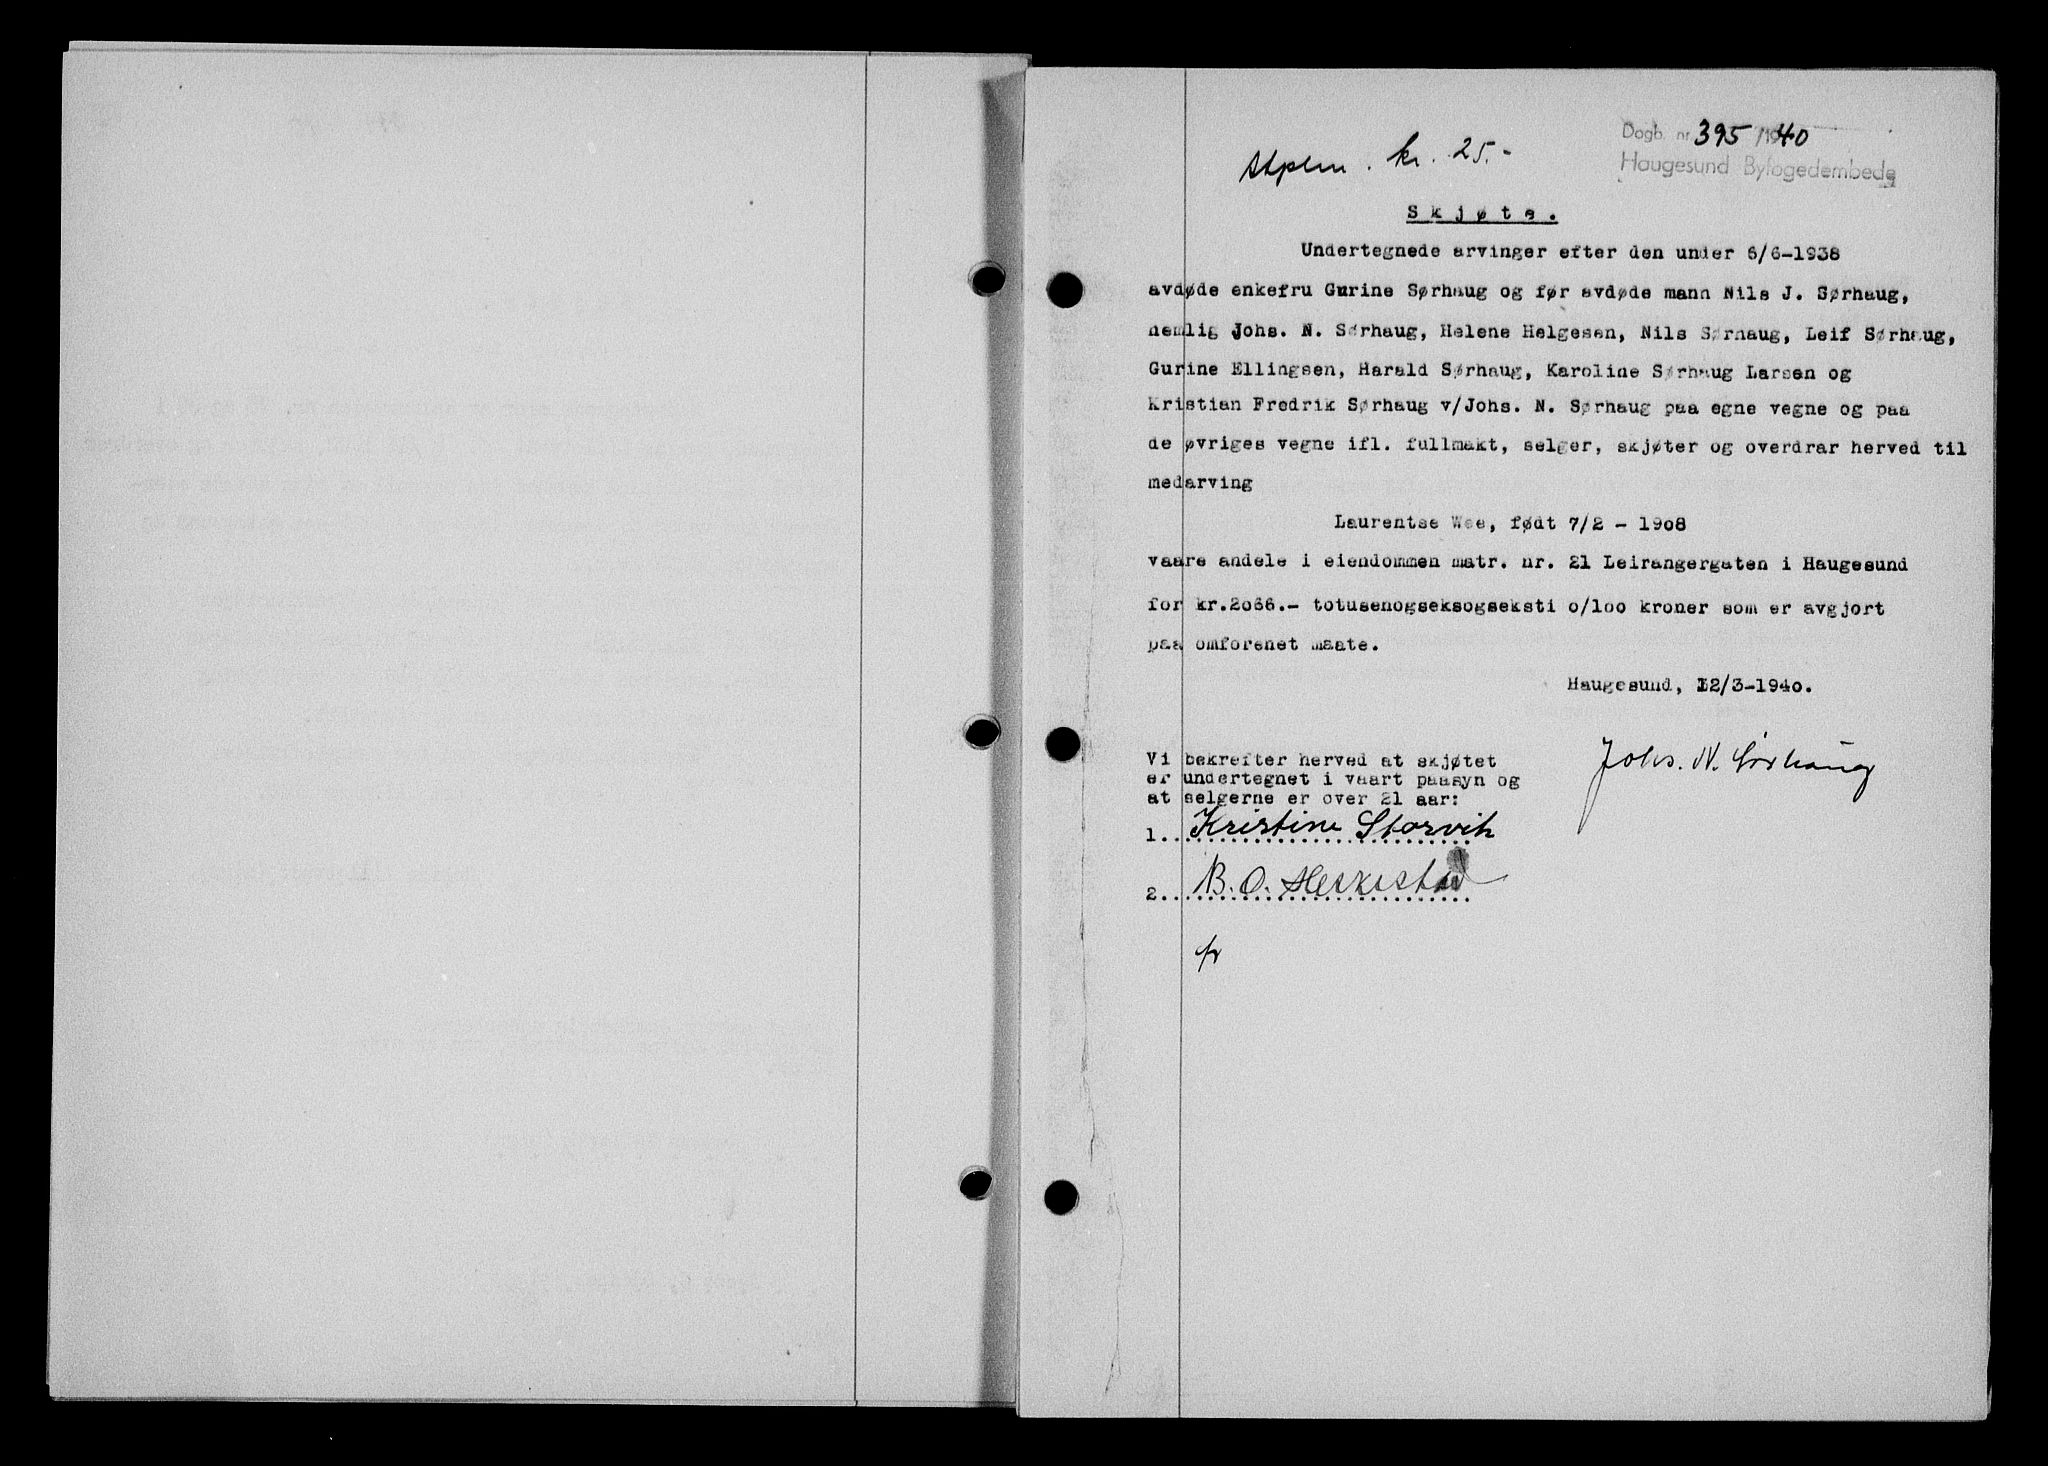 Dagb. nr. 395/1940
Haugesund Byfogedembede
Stplm. kr. 25.-
Skjøte.
Undertegnede arvinger efter den under 6/6-1938
avdøde enkefru Gurine Sørhaug og før avdøde mann Nils J. Sørhaug,
nemlig Johs. N. Sørhaug, Helene Helgesen, Nils Sørhaug, Leif Sørhaug,
Gurine Ellingsen, Harald Sørhaug, Karoline Sørhaug Larsen og
Kristian Fredrik Sørhaug v/Johs. N. Sørhaug paa egne vegne og paa
de øvriges vegne ifl. fullmakt, selger, skjøter og overdrar herved til
medarving
Laurentse Wee, født 7/2 - 1908
vaare andele i eiendommen matr. nr. 21 Leirangergaten i Haugesund
for kr.2066.- totusenogseksogseksti o/loo kroner som er avgjort
paa omforenet maate.
Haugesund, 12/3-1940.
Vi bekrefter herved at skjøtet
er undertegnet i vaart paasyn og
at selgerne er over 21 aar:
Johs. N. Sørhaug
1. Kristine Storvik
2. B. O. Heskestad